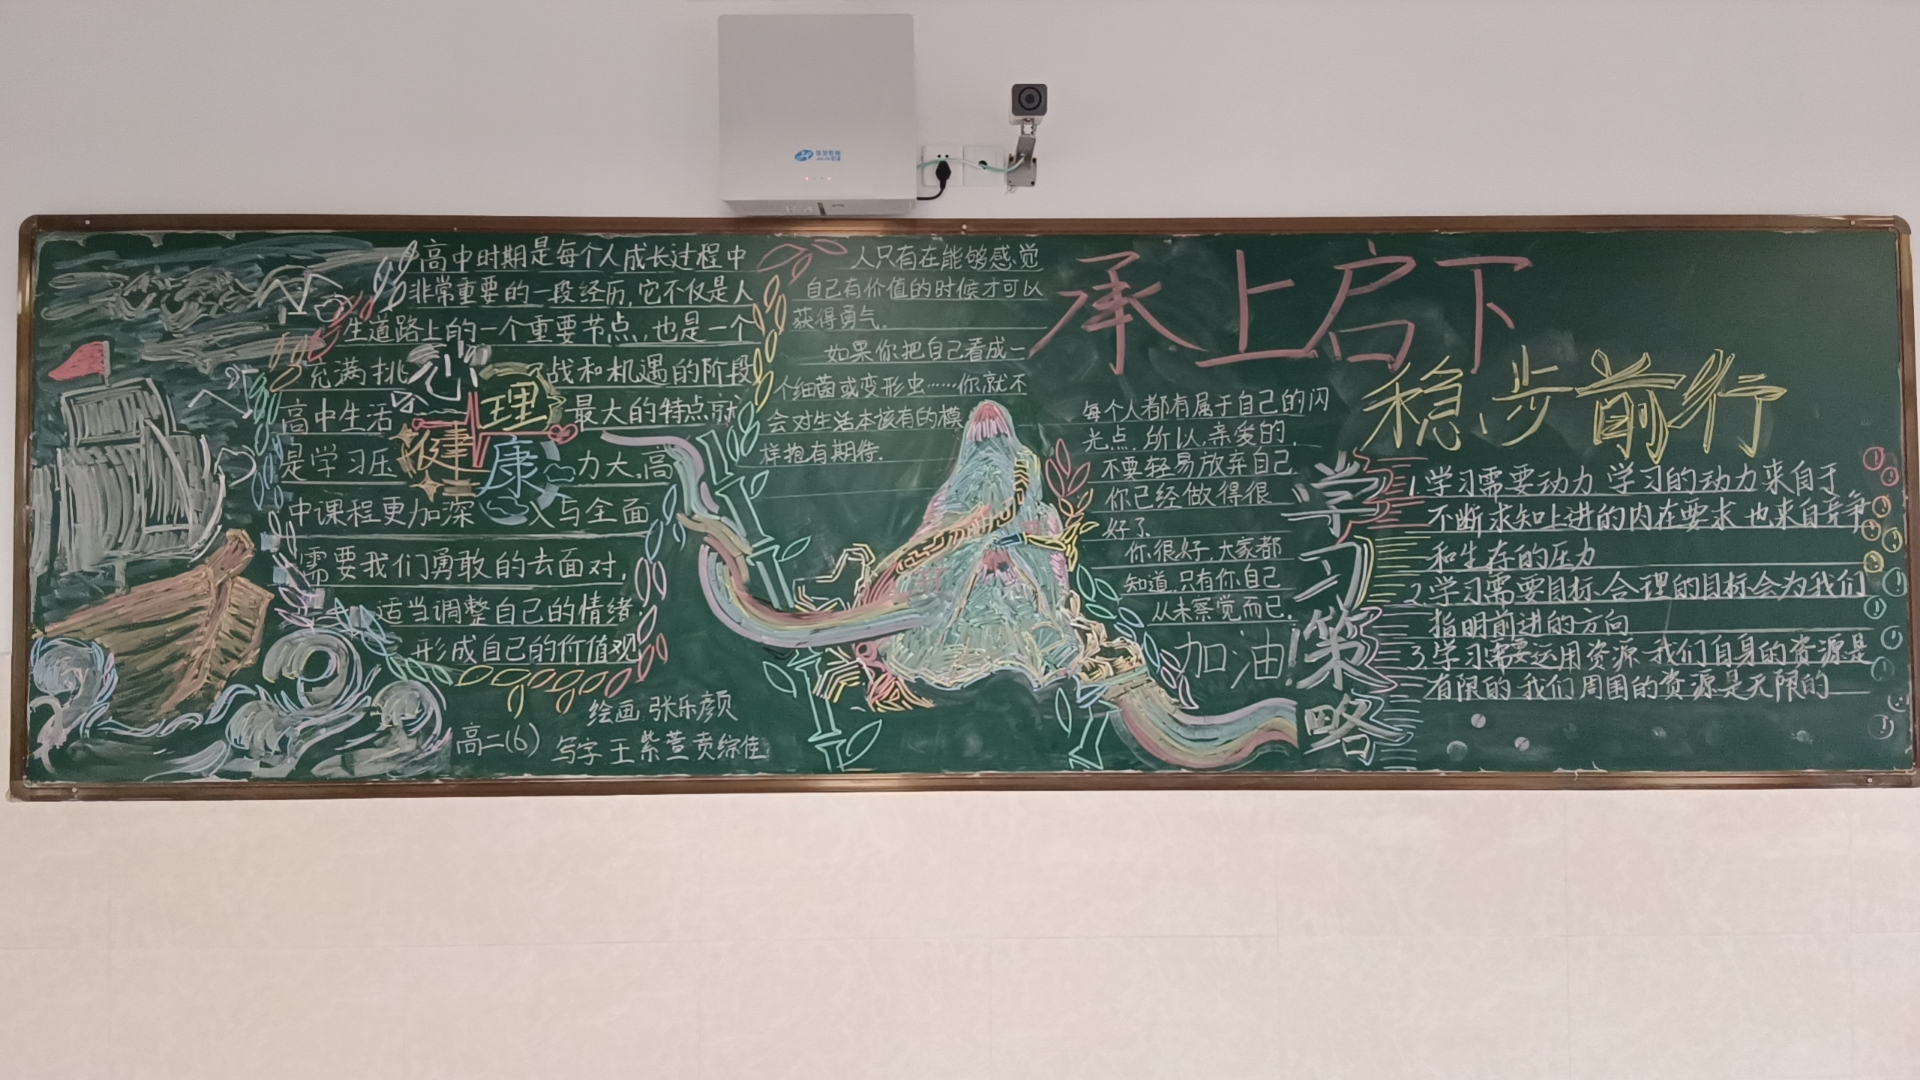 承上启下
稳步前行
高中时期是每个人成长过程中
非常重要的一段经历,它不仅是人
生道路上的一个重要节点,也是一个
充满挑战和机遇的阶段
高中生活最大的特点就
是学习压力大,高
中课程更加深入与全面
需要我们勇敢的去面对,
适当调整自己的情绪
形成自己的价值观
心理
健康
高二(6)
绘画 张乐颜
写字 王紫萱 贲综佳
人只有在能够感觉
自己有价值的时候才可以
获得勇气.
如果你把自己看成一
个细菌或变形虫……你就不
会对生活本该有的模
样抱有期待.
每个人都有属于自己的闪
光点,所以,亲爱的,
不要轻易放弃自己
你已经做得很
好了
你很好,大家都
知道,只有你自己
从未察觉而已.
加油!
学习策略
1.学习需要动力 学习的动力来自于
不断求知上进的内在要求 也来自竞争
和生存的压力
2.学习需要目标 合理的目标会为我们
指明前进的方向
3.学习需要运用资源 我们自身的资源是
有限的 我们周围的资源是无限的